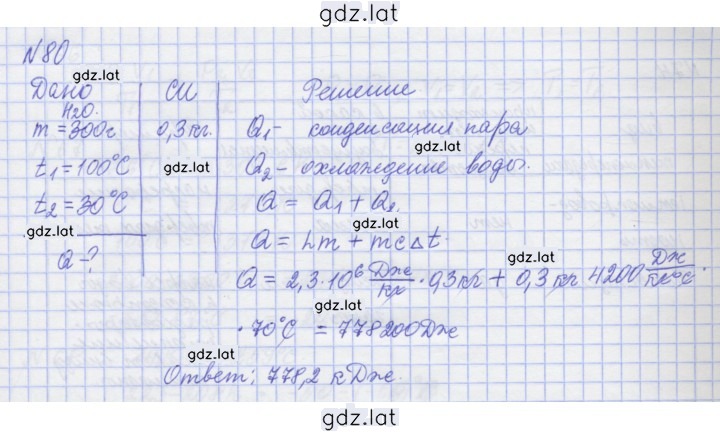 gdz.lat
N80
gdz.lat
Дано
H2O.
m = 300г
t1 = 100°C
t2 = 30°C
gdz.lat
Q - ?
СИ
0,3 кг.
gdz.lat
Решение
Q1 - конденсация пара
gdz.lat
Q2 - охлаждение воды.
Q = Q1 + Q2.
gdz.lat
Q = Lm + mcΔt.
gdz.lat
Q = 2,3·10⁶ Дж/кг · 0,3 кг + 0,3 кг 4200 Дж/кг°C ·
gdz.lat
· 70°C = 778200 Дж
gdz.lat
Ответ: 778,2 кДж.
gdz.lat